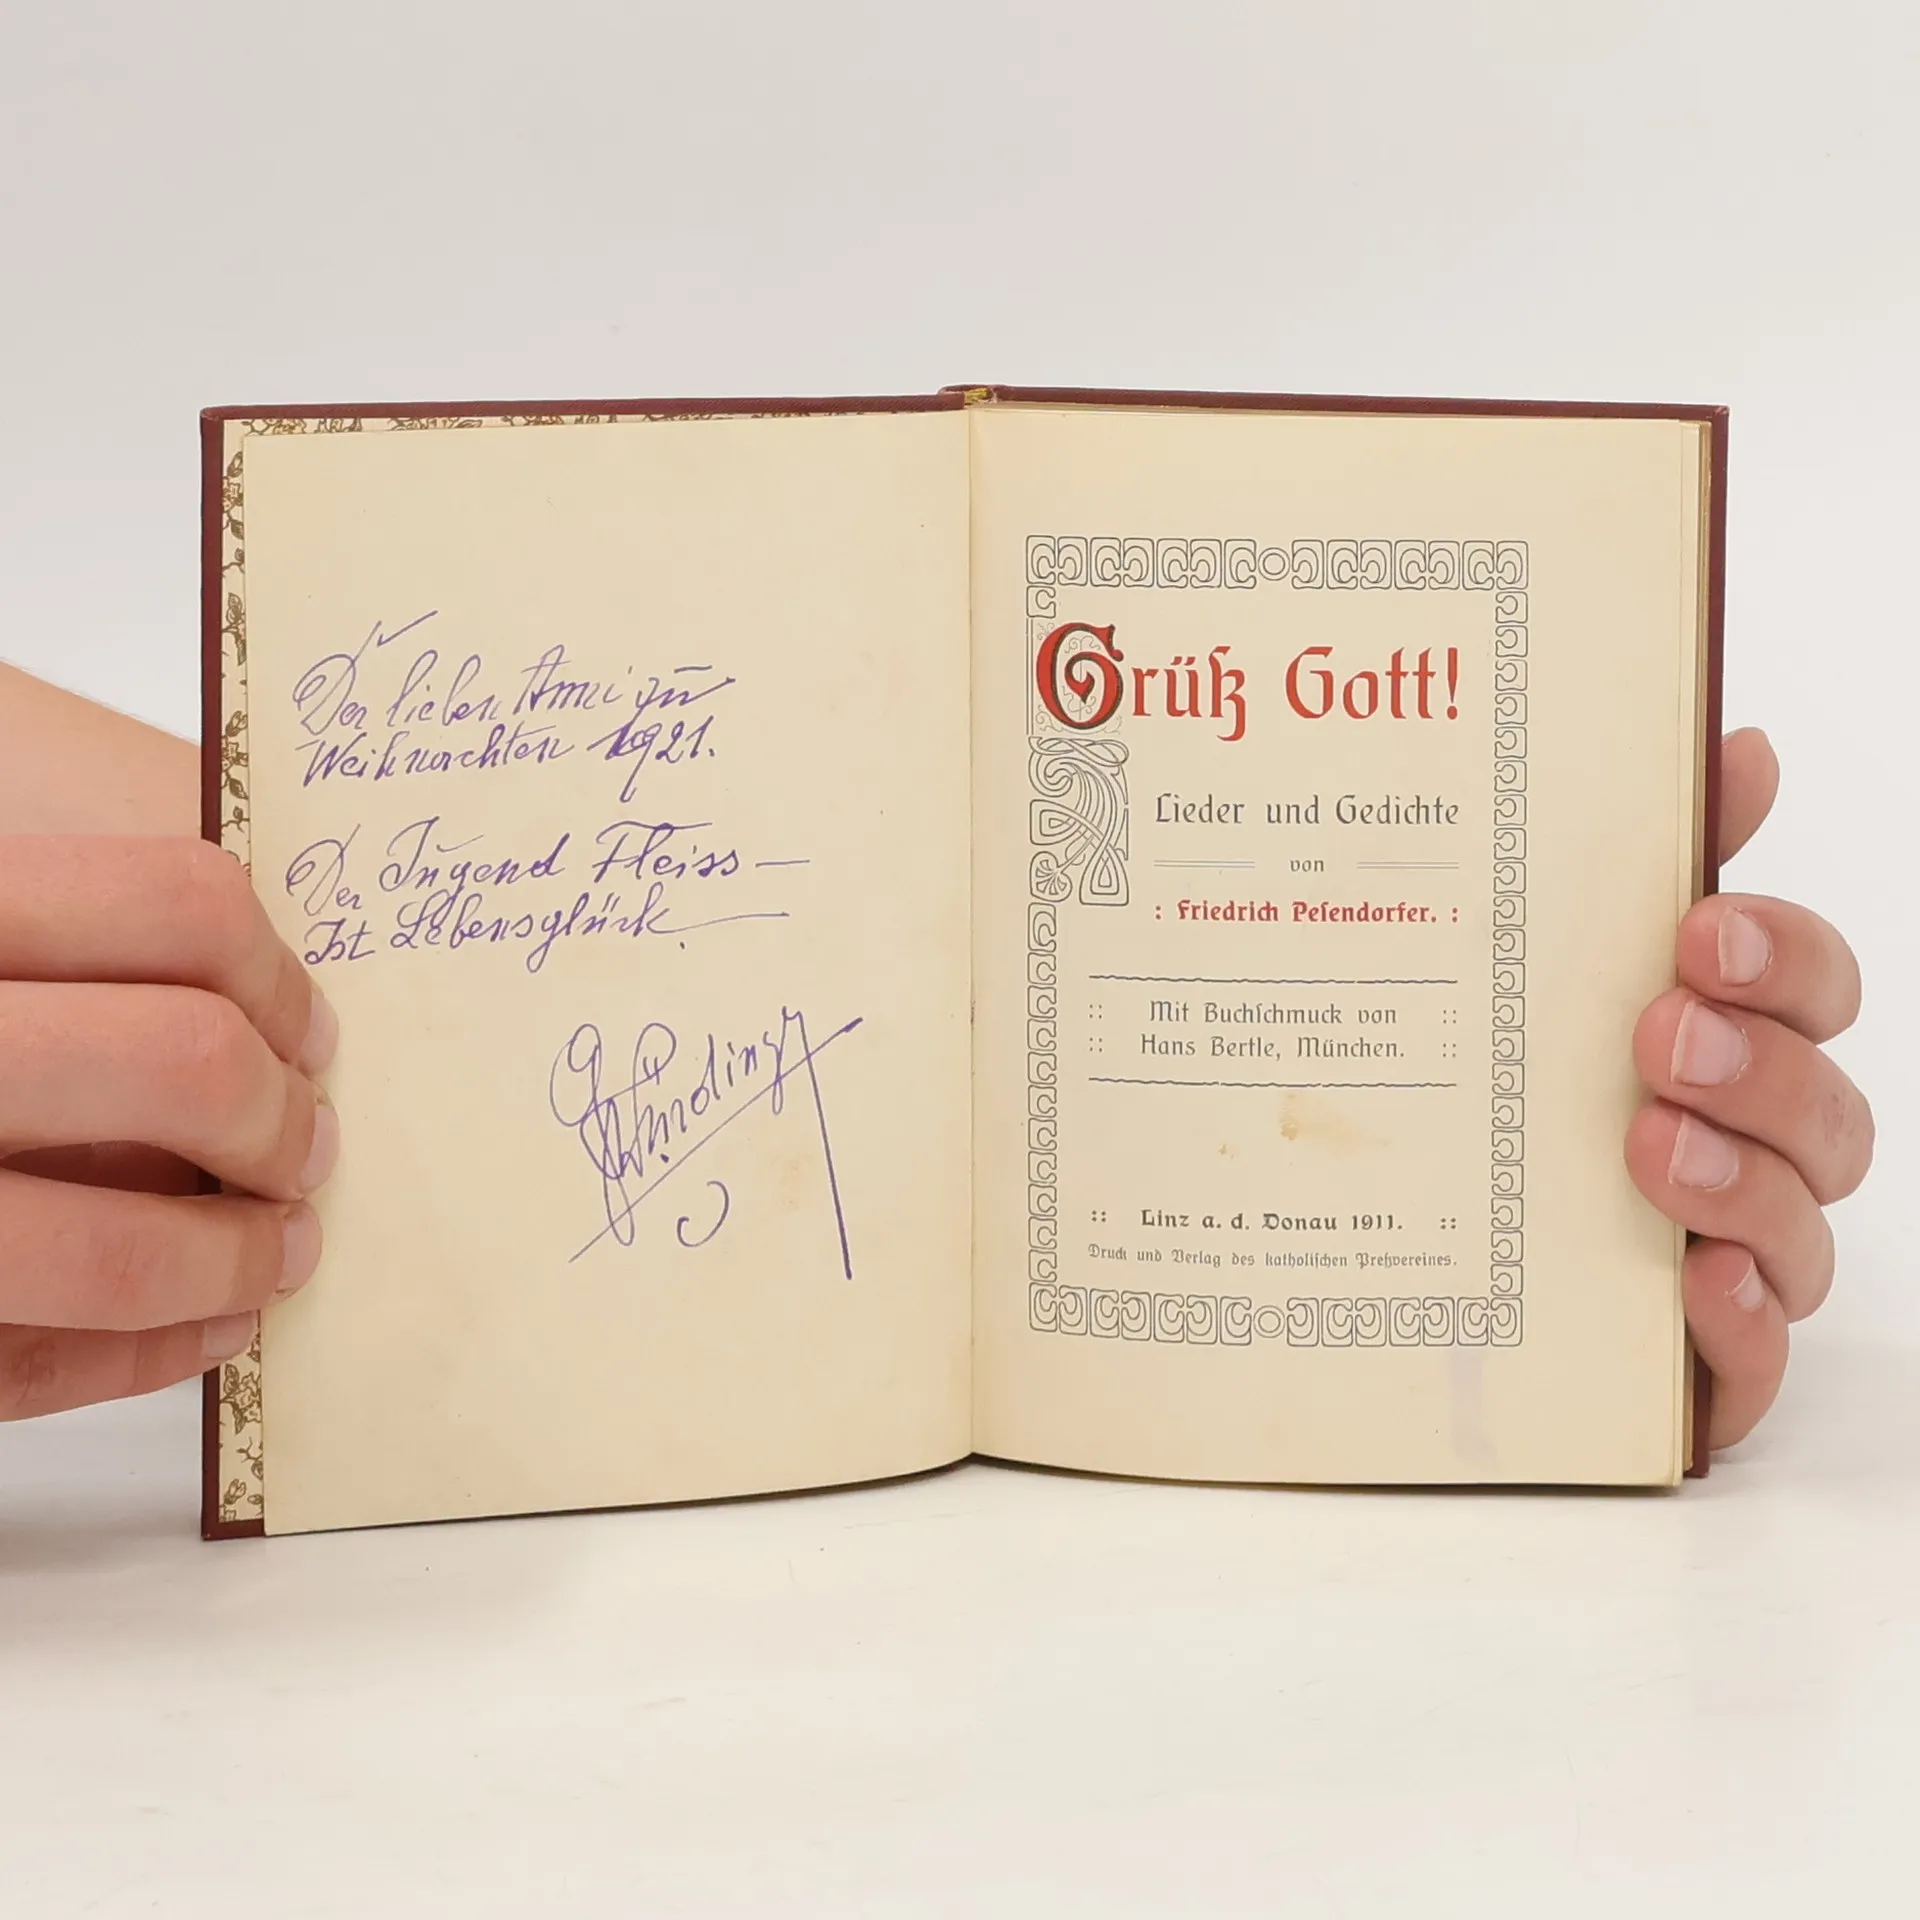 Der lieben Anni zu
Weihnachten 1921.
Der Jugend Fleiss —
Ist Lebensglück. —
Grüß Gott!
Lieder und Gedichte
von
: Friedrich Peſendorfer. :
:: Mit Buchſchmuck von ::
:: Hans Bertle, München. ::
:: Linz a. d. Donau 1911. ::
Druck und Verlag des katholiſchen Preßvereines.